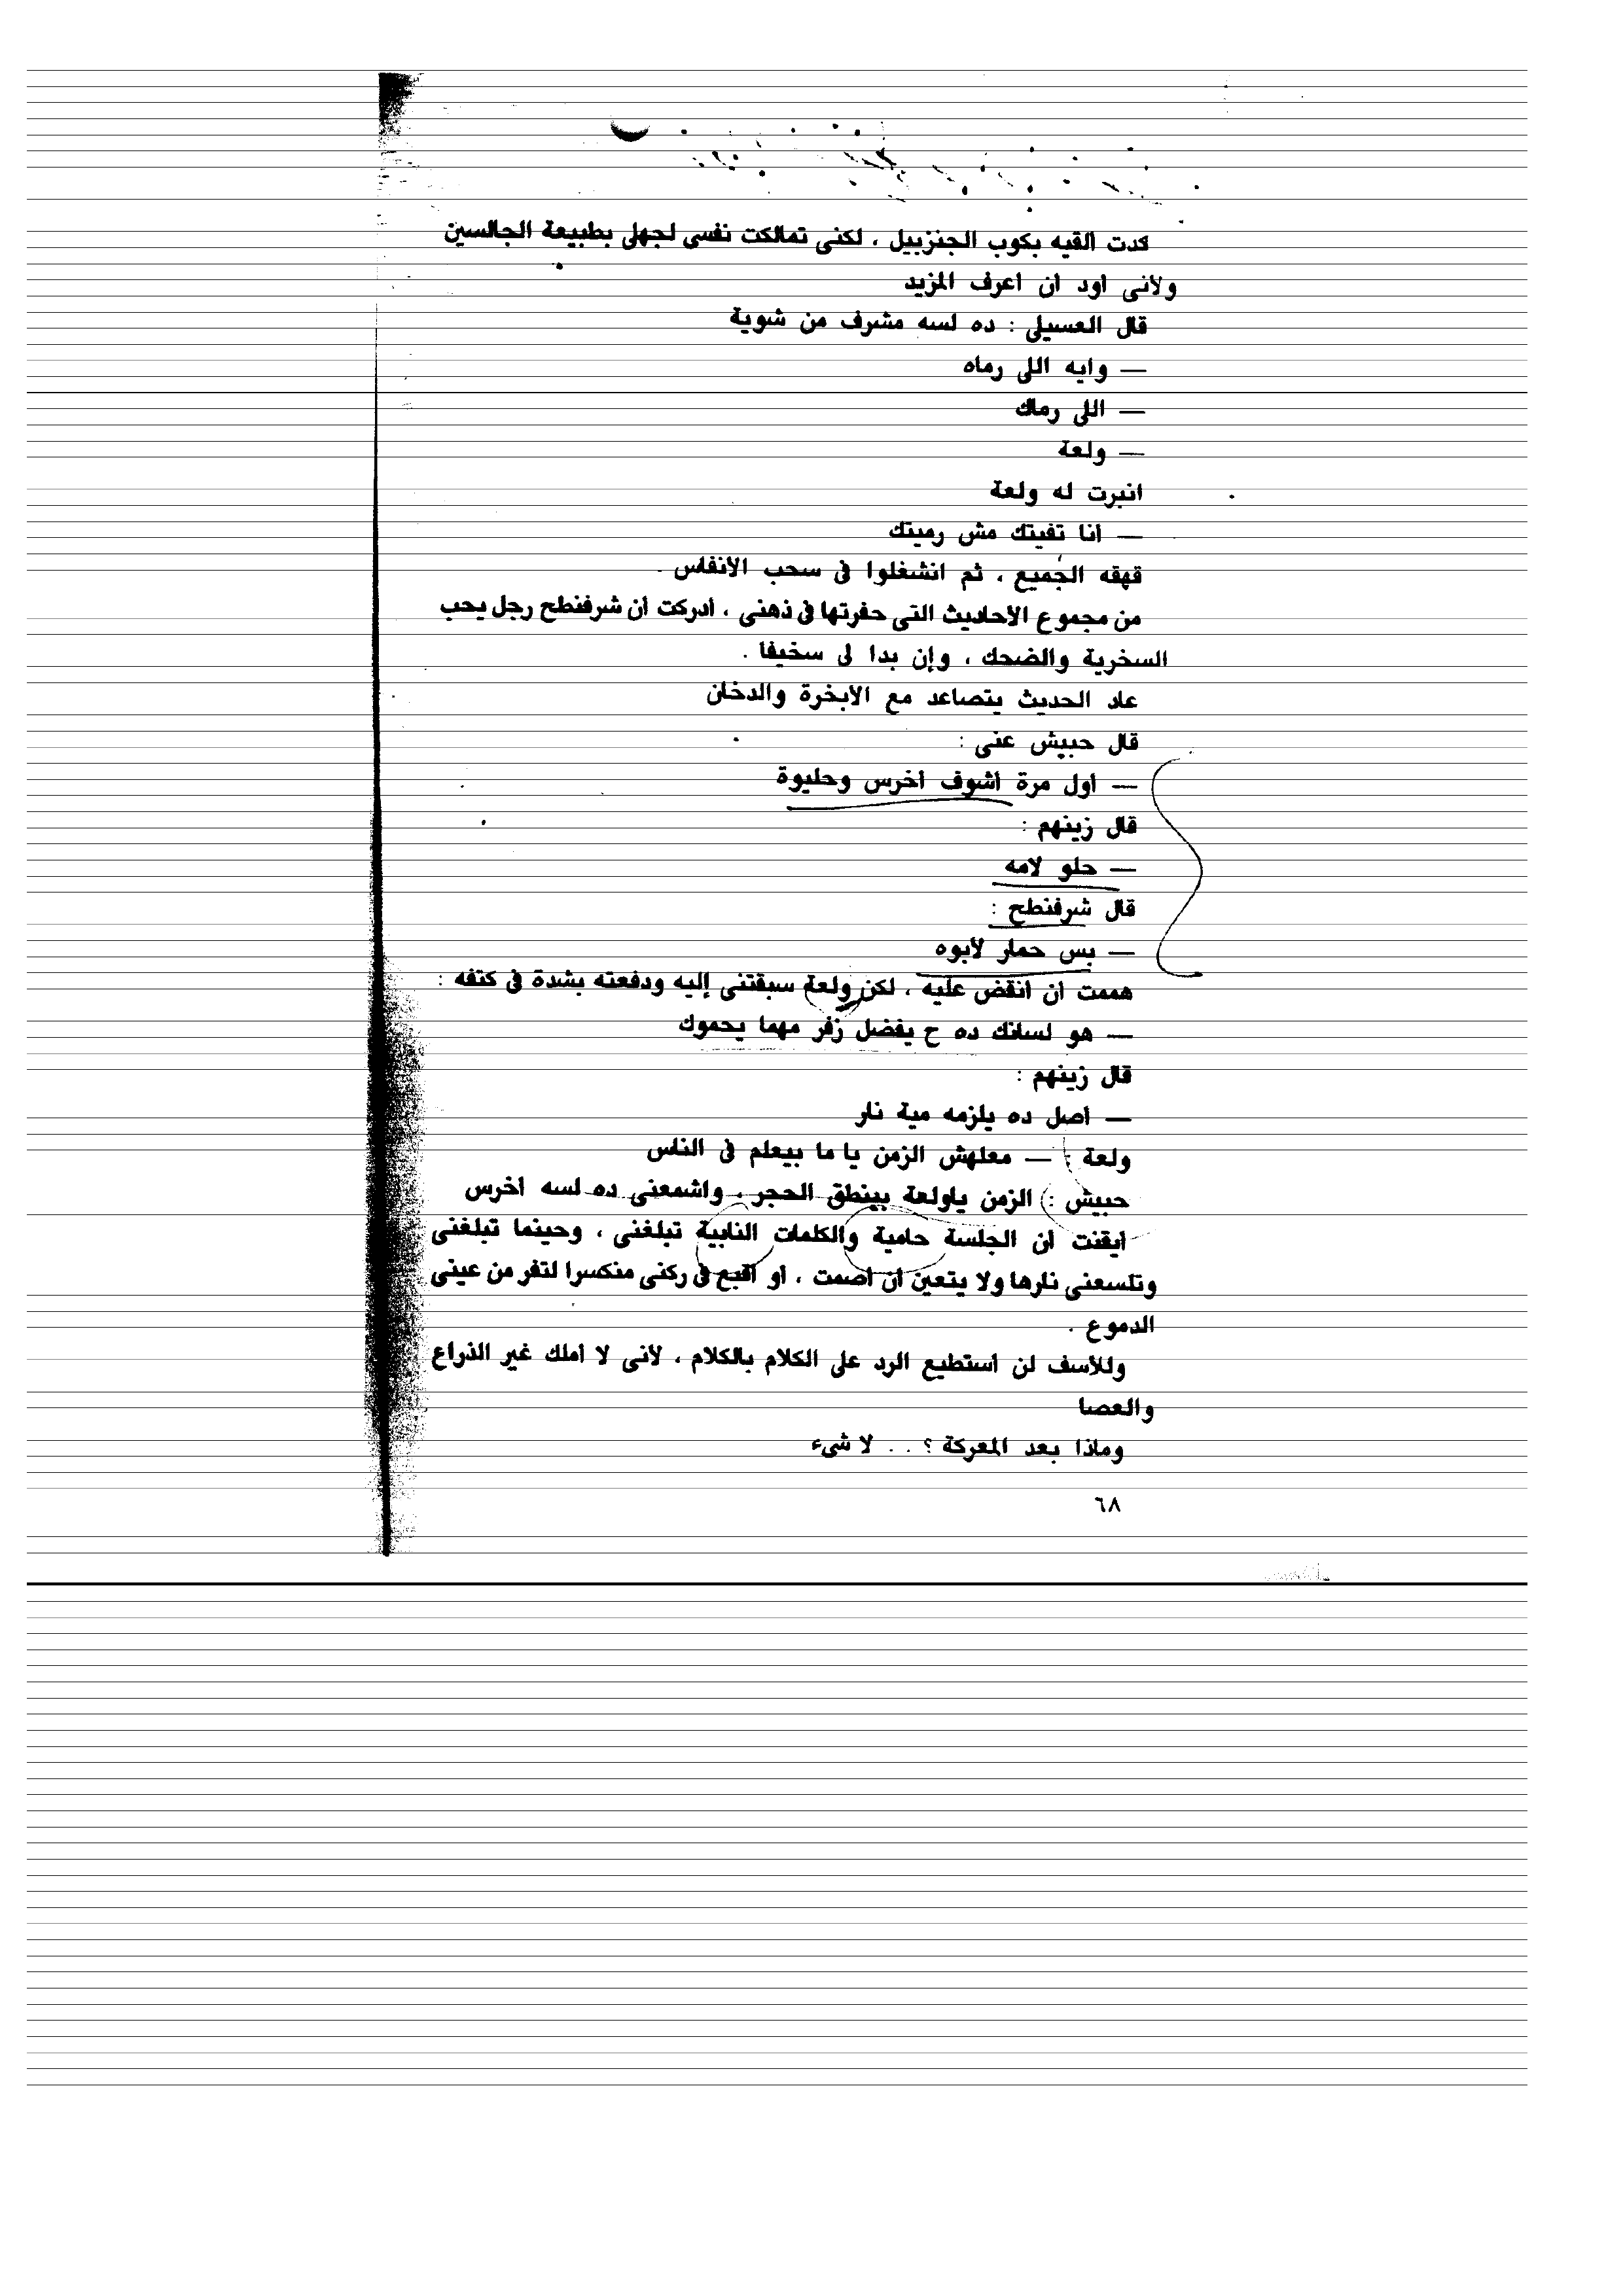 كدت ألقيه بكوب الجنزبيل ، لكنى تمالكت نفسى لجهلى بطبيعة الجالسين
ولأنى أود أن أعرف المزيد
قال العسيلى : ده لسه مشرف من شوية
— وايه اللى رماه
— اللى رماك
— ولعة
انبرت له ولعة
— أنا تفيتك مش رميتك
قهقه الجميع ، ثم انشغلوا فى سحب الأنفاس .
من مجموع الأحاديث التى حفرتها فى ذهنى ، أدركت أن شرفنطح رجل يحب
السخرية والضحك ، وإن بدا لى سخيفا .
عاد الحديث يتصاعد مع الأبخرة والدخان
قال حبيش عنى :
— أول مرة أشوف أخرس وحليوة
قال زينهم :
— حلو لامه
قال شرفنطح :
— بس حمار لأبوه
هممت أن أنقض عليه ، لكن ولعة سبقتنى إليه ودفعته بشدة فى كتفه :
— هو لسانك ده ح يفضل زفر مهما يحموك
قال زينهم :
— أصل ده يلزمه مية نار
ولعة : — معلهش الزمن يا ما بيعلم فى الناس
حبيش : الزمن ياولعة بينطق الحجر ، واشمعنى ده لسه أخرس
أيقنت أن الجلسة حامية والكلمات النابية تبلغنى ، وحينما تبلغنى
وتلسعنى نارها ولا يتعين أن أصمت ، أو أقبع فى ركنى منكسرا لتفر من عينى
الدموع .
وللأسف لن أستطيع الرد على الكلام بالكلام ، لأنى لا أملك غير الذراع
والعصا
وماذا بعد المعركة ؟ . . لا شىء
٦٨